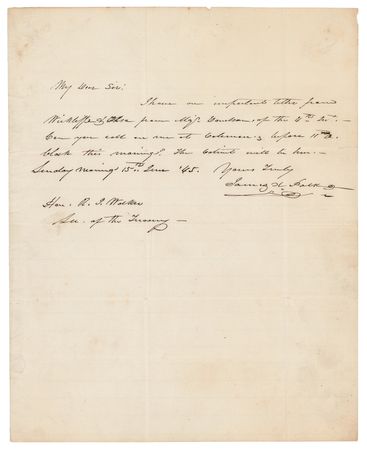 My Dear Sir:
I have an important letter from
Wickliffe, & also from Majr. Donelson, of the 4th Int. -
Can you call on me at Coleman's before 11 O.
Clock this morning? The Cabinet will be here. -
Sunday morning 15th June '45. Yours Truly
James K. Polk
Hon. R. J. Walker
Sec. of the Treasury -